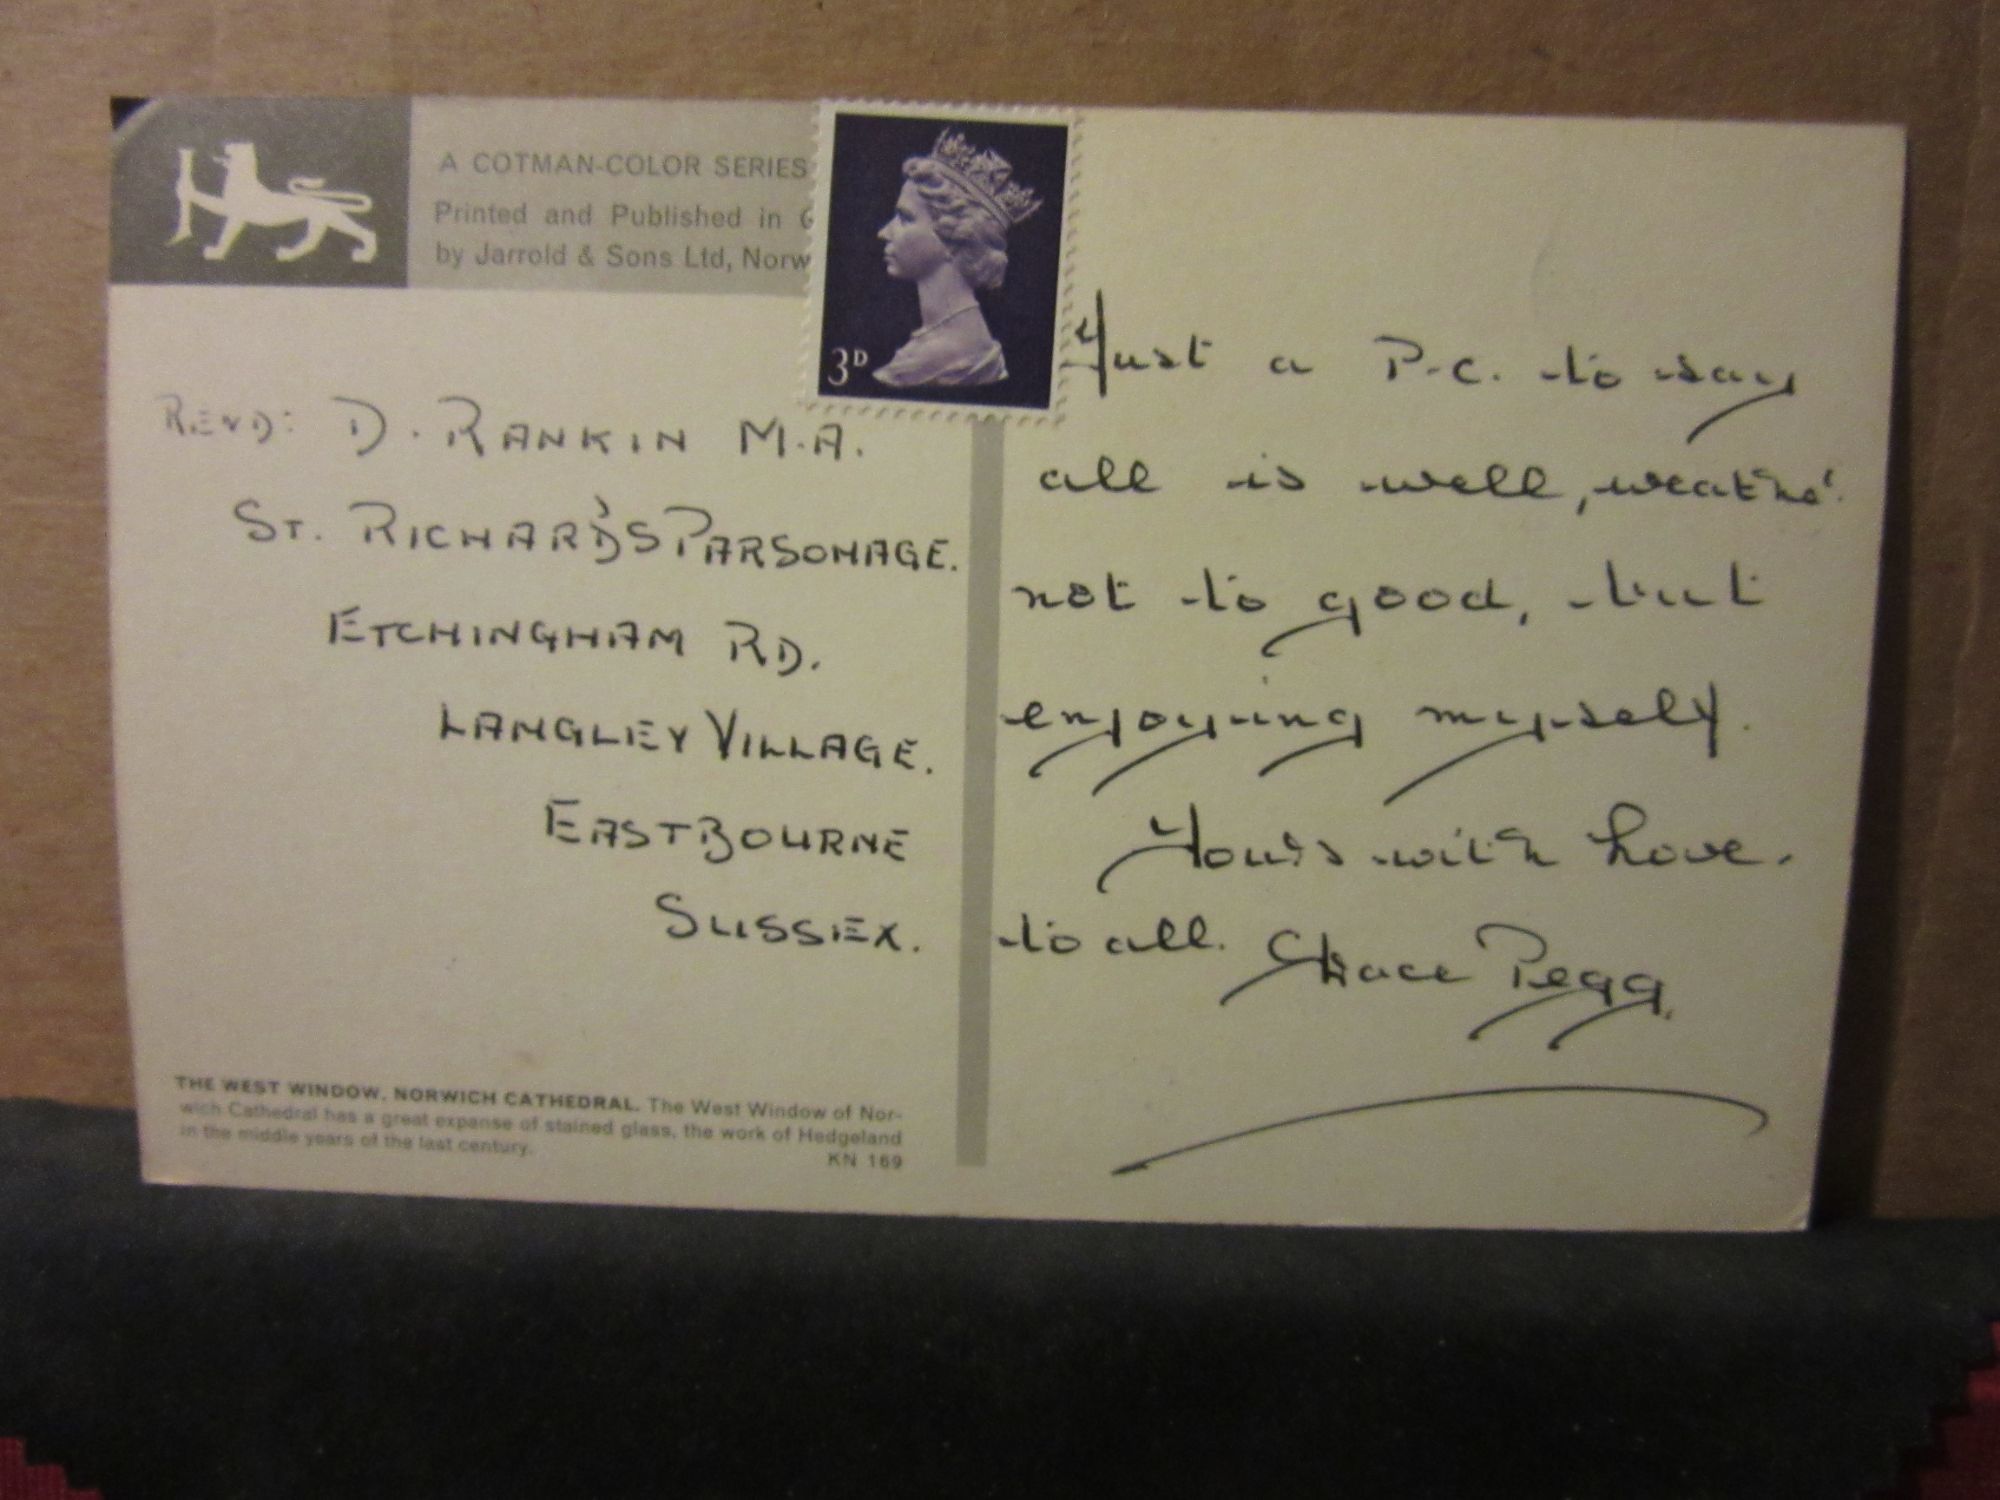 A COTMAN-COLOR SERIES
Printed and Published in G
by Jarrold & Sons Ltd, Norw
3D
REVD: D. RANKIN M.A.
ST. RICHARD'S PARSONAGE.
ETCHINGHAM RD.
LANGLEY VILLAGE.
EASTBOURNE
SUSSEX.
THE WEST WINDOW, NORWICH CATHEDRAL. The West Window of Nor-
wich Cathedral has a great expanse of stained glass, the work of Hedgeland
in the middle years of the last century.
KN 169
Just a P.C. to say
all is well, weather
not to good, but
enjoying myself.
Yours with Love.
to all. Grace Pegg.